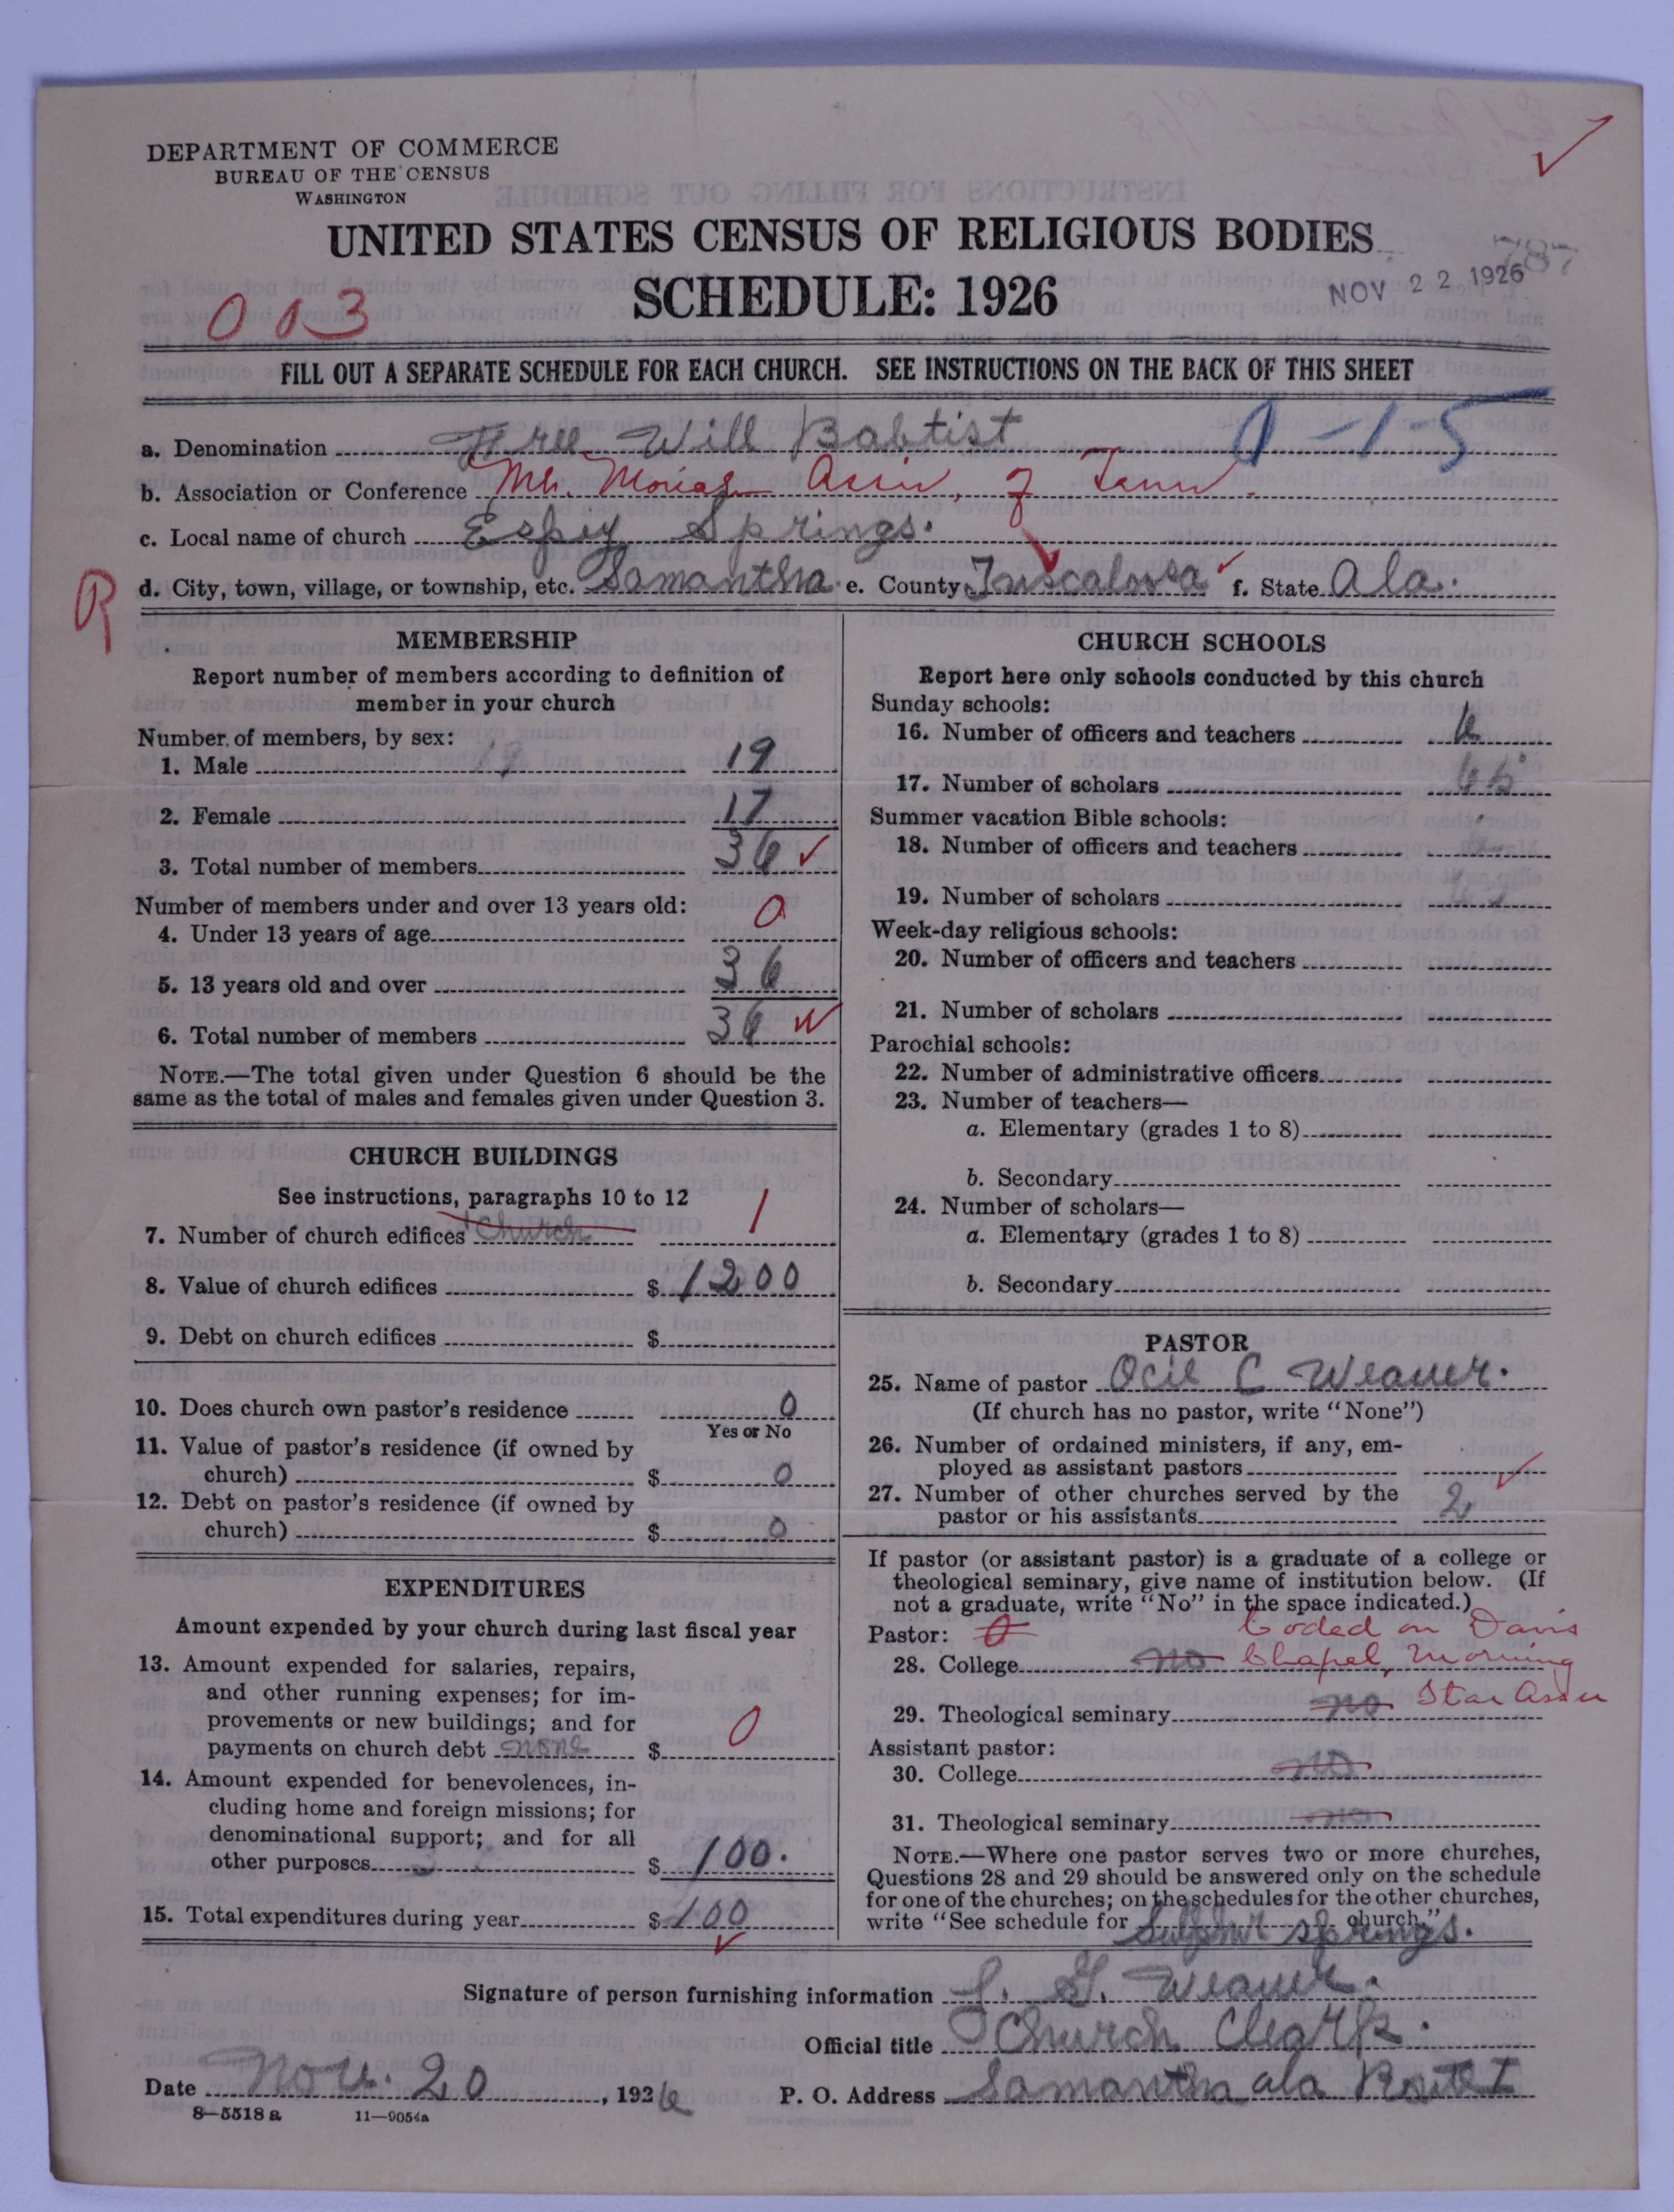 DEPARTMENT OF COMMERCE
BUREAU OF THE CENSUS
WASHINGTON
UNITED STATES CENSUS OF RELIGIOUS BODIES
SCHEDULE: 1926
787
NOV 22 1926
003
FILL OUT A SEPARATE SCHEDULE FOR EACH CHURCH. SEE INSTRUCTIONS ON THE BACK OF THIS SHEET
a. Denomination Free Will Babtist 0-1-5
b. Association or Conference Mt. Moriah Assn. of Tenn.
c. Local name of church Espey Springs.
R
d. City, town, village, or township, etc. Samantha e. County Tuscaloosa f. State Ala.
MEMBERSHIP
Report number of members according to definition of
member in your church
Number of members, by sex:
1. Male 19 19
2. Female 17
3. Total number of members 36
Number of members under and over 13 years old:
4. Under 13 years of age 0
5. 13 years old and over 36
6. Total number of members 36
NOTE.—The total given under Question 6 should be the
same as the total of males and females given under Question 3.
CHURCH BUILDINGS
See instructions, paragraphs 10 to 12
7. Number of church edifices 1 Church 1
8. Value of church edifices $ 1200
9. Debt on church edifices $
10. Does church own pastor's residence 0
Yes or No
11. Value of pastor's residence (if owned by
church) $ 0
12. Debt on pastor's residence (if owned by
church) $ 0
EXPENDITURES
Amount expended by your church during last fiscal year
13. Amount expended for salaries, repairs,
and other running expenses; for im-
provements or new buildings; and for
payments on church debt none $ 0
14. Amount expended for benevolences, in-
cluding home and foreign missions; for
denominational support; and for all
other purposes $ 100.
15. Total expenditures during year $ 100
CHURCH SCHOOLS
Report here only schools conducted by this church
Sunday schools:
16. Number of officers and teachers 6
17. Number of scholars 65
Summer vacation Bible schools:
18. Number of officers and teachers
19. Number of scholars
Week-day religious schools:
20. Number of officers and teachers
21. Number of scholars
Parochial schools:
22. Number of administrative officers
23. Number of teachers—
a. Elementary (grades 1 to 8)
b. Secondary
24. Number of scholars—
a. Elementary (grades 1 to 8)
b. Secondary
PASTOR
25. Name of pastor Ocie C Weaver.
(If church has no pastor, write "None")
26. Number of ordained ministers, if any, em-
ployed as assistant pastors
27. Number of other churches served by the
pastor or his assistants 2
If pastor (or assistant pastor) is a graduate of a college or
theological seminary, give name of institution below. (If
not a graduate, write "No" in the space indicated.)
Pastor: 0 Coded on Davis
28. College no Chapel, Morning
29. Theological seminary no Star Assn
Assistant pastor:
30. College no
31. Theological seminary no
NOTE.—Where one pastor serves two or more churches,
Questions 28 and 29 should be answered only on the schedule
for one of the churches; on the schedules for the other churches,
write "See schedule for Sulphur Springs. church."
Signature of person furnishing information S. G. Weaver.
Official title Church Cleark.
Date Nov. 20, 1926 P. O. Address Samantha ala Route 1
8—5518 a 11—9054a